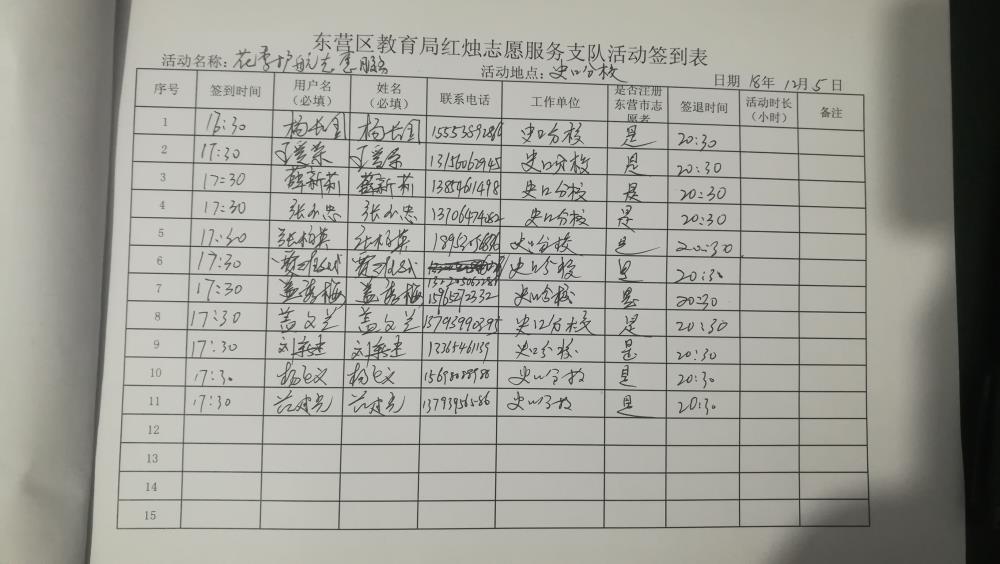 东营区教育局红烛志愿服务支队活动签到表
活动名称：花季护航志愿服务 活动地点：史口分校 日期 18年 12月 5日
序号 签到时间 用户名（必填） 姓名（必填） 联系电话 工作单位 是否注册东营市志愿者 签退时间 活动时长（小时） 备注
1 17:30 杨长金 杨长金 史口分校 是 20:30
2 17:30 王爱荣 王爱荣 13156062945 史口分校 是 20:30
3 17:30 薛新莉 薛新莉 1385461498 史口分校 是 20:30
4 17:30 张小忠 张小忠 13706474282 史口分校 是 20:30
5 17:30 张柏英 张柏英 史口分校 是 20:30
6 17:30 史口分校 是 20:30
7 17:30 盖秀梅 盖秀梅 15965272332 史口分校 是 20:30
8 17:30 盖文兰 盖文兰 15793990395 史口分校 是 20:30
9 17:30 刘 刘 史口分校 是 20:30
10 17:30 杨飞文 杨飞文 史口分校 是 20:30
11 17:30 史口分校 是 20:30
12
13
14
15